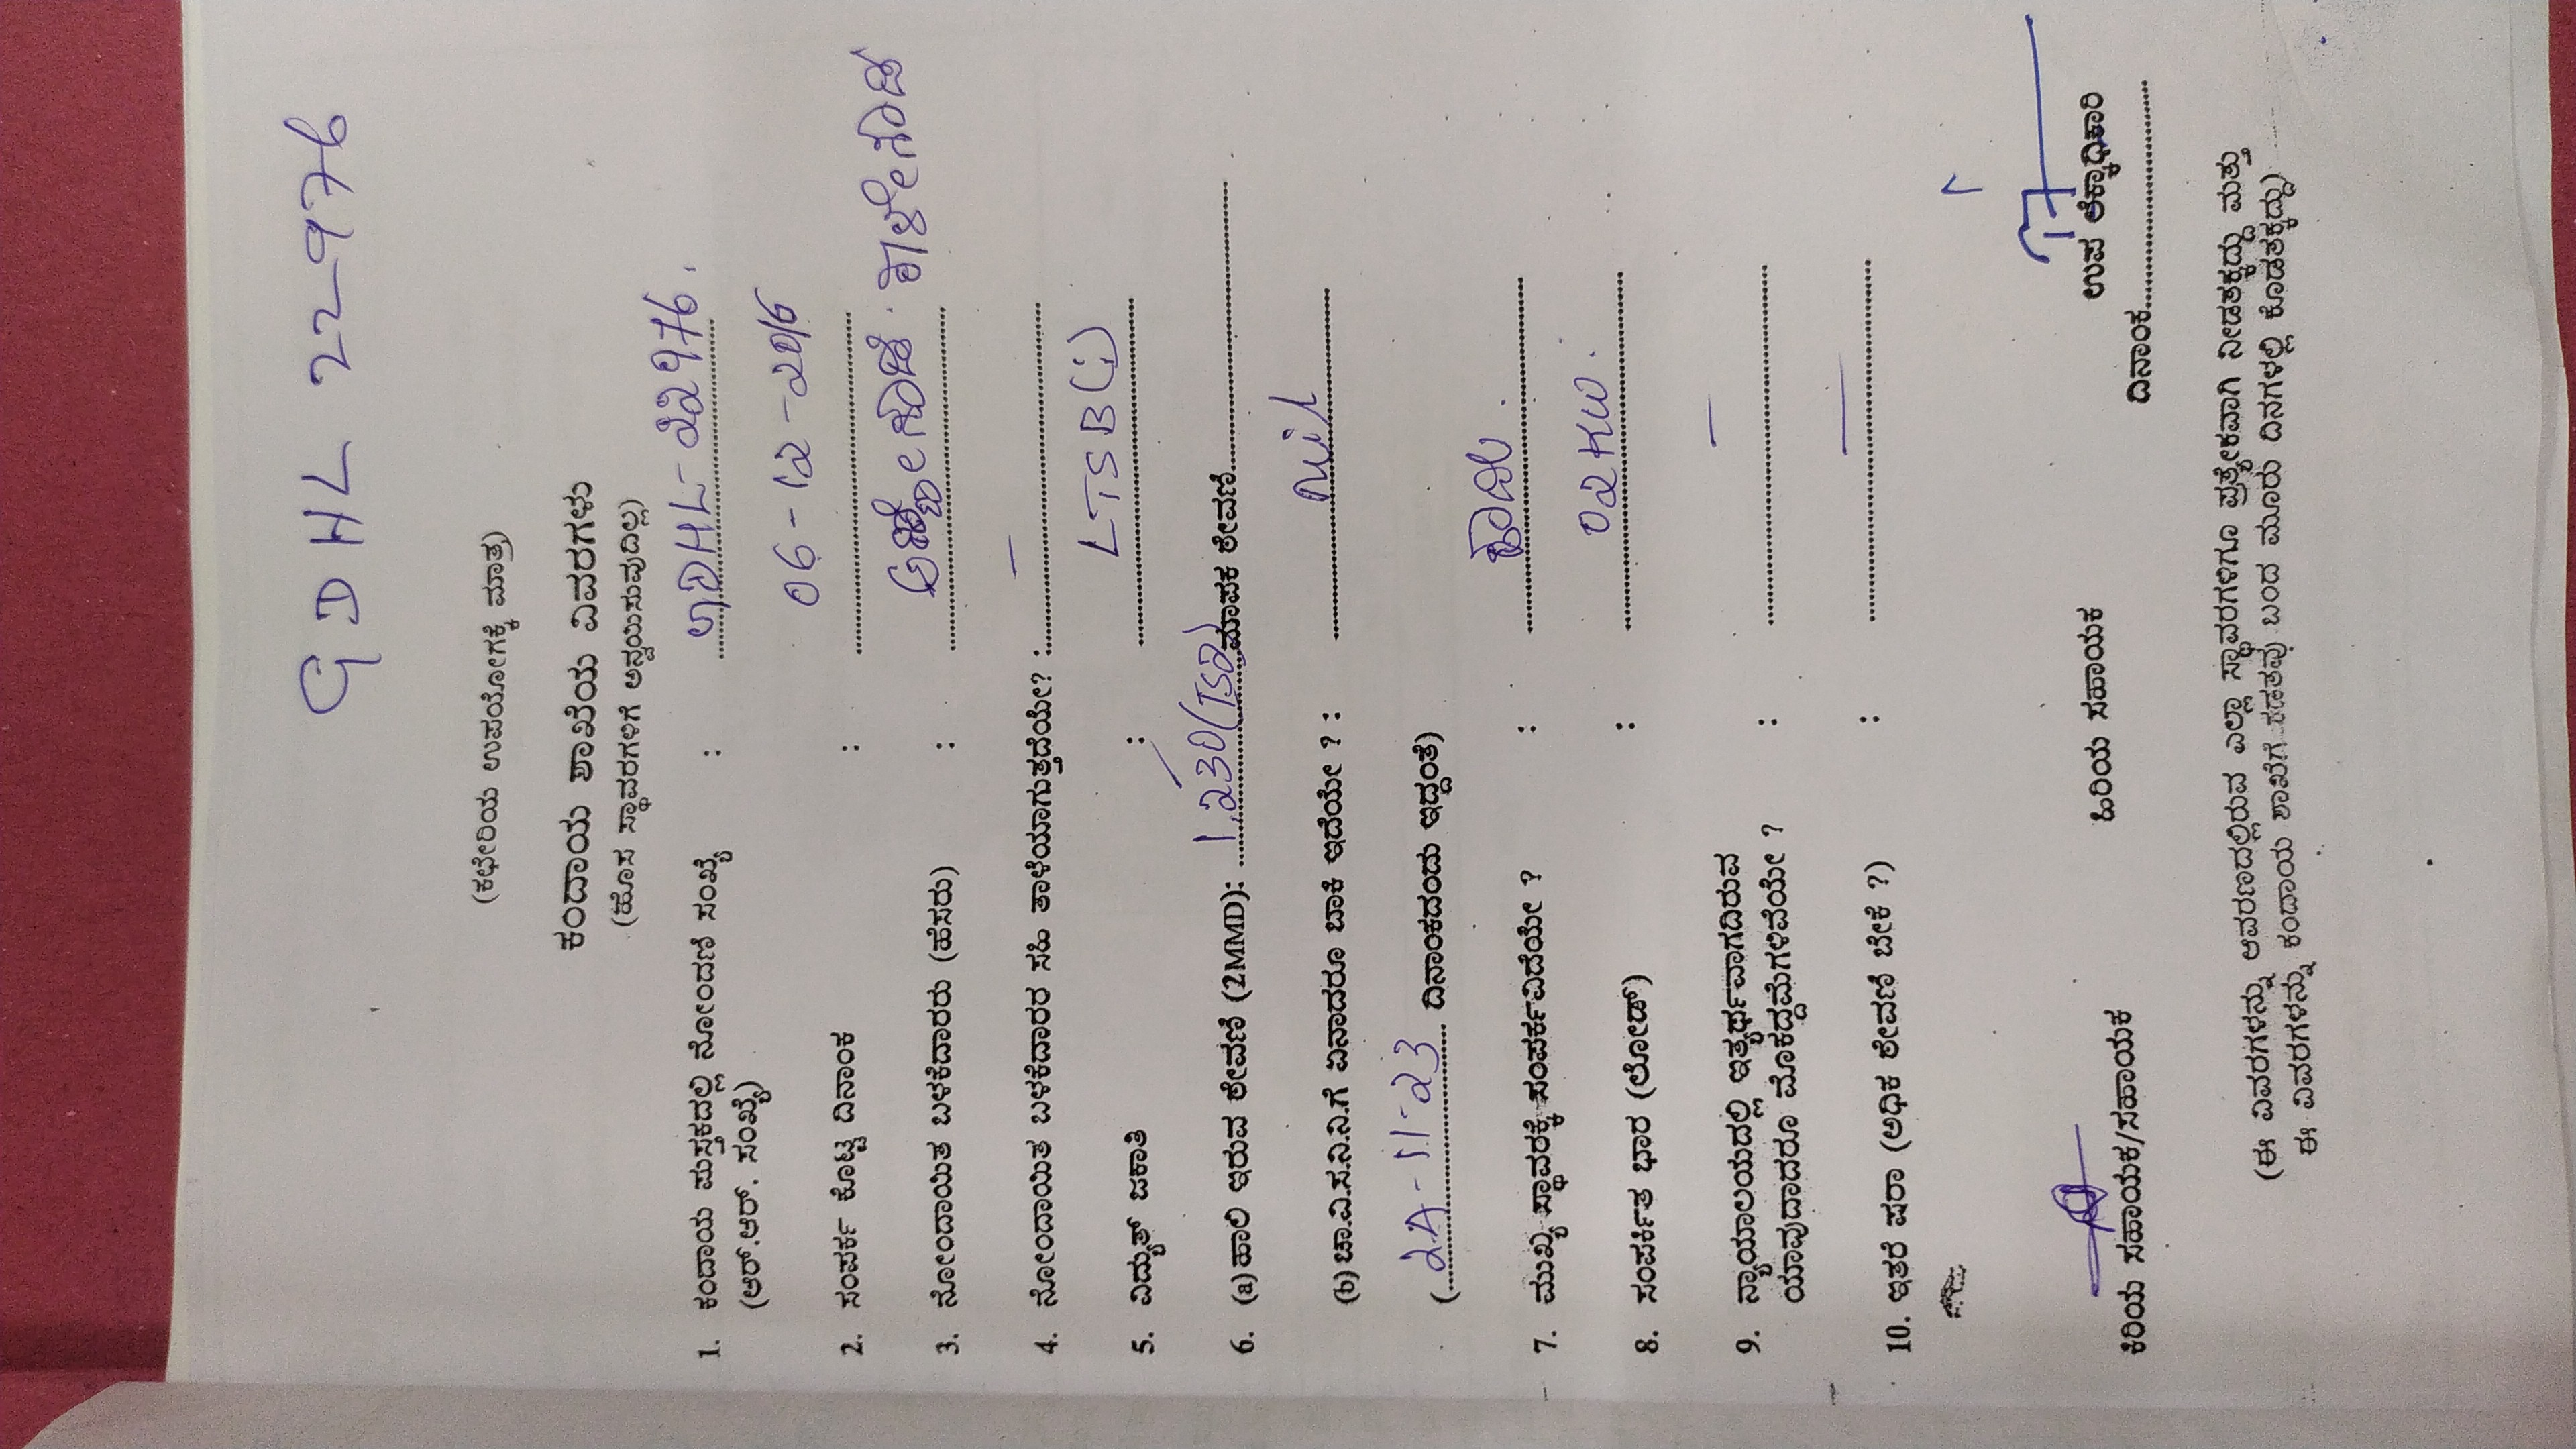 GDHL 22976
(ಕಛೇರಿಯ ಉಪಯೋಗಕ್ಕೆ ಮಾತ್ರ)
ಕಂದಾಯ ಶಾಖೆಯ ವಿವರಗಳು
(ಹೊಸ ಸ್ಥಾವರಗಳಿಗೆ ಅನ್ವಯಿಸುವುದಿಲ್ಲ)
1. ಕಂದಾಯ ಪುಸ್ತಕದಲ್ಲಿ ನೋಂದಣಿ ಸಂಖ್ಯೆ : GDHL-22976.
(ಆರ್.ಆರ್. ಸಂಖ್ಯೆ)
2. ಸಂಪರ್ಕ ಕೊಟ್ಟ ದಿನಾಂಕ : 06-12-2016
3. ನೋಂದಾಯಿತ ಬಳಕೆದಾರರು (ಹೆಸರು) : ಕಾಳೇಗೌಡ
4. ನೋಂದಾಯಿತ ಬಳಕೆದಾರರ ಸಹಿ ತಾಳೆಯಾಗುತ್ತದೆಯೇ? : –
5. ವಿದ್ಯುತ್ ಜಕಾತಿ : LT5B(i)
6. (a) ಹಾಲಿ ಇರುವ ಠೇವಣಿ (2MMD): 1,230/(ISD) ಮಾಪಕ ಠೇವಣಿ
(b) ಚಾ.ವಿ.ಸ.ನಿ.ನಿ.ಗೆ ಏನಾದರೂ ಬಾಕಿ ಇದೆಯೇ ? : Nil
(24-11-23 ದಿನಾಂಕದಂದು ಇದ್ದಂತೆ)
7. ಮುಖ್ಯ ಸ್ಥಾವರಕ್ಕೆ ಸಂಪರ್ಕವಿದೆಯೇ ? : ಹೌದು.
8. ಸಂಪರ್ಕಿತ ಭಾರ (ಲೋಡ್) : 02KW.
9. ನ್ಯಾಯಾಲಯದಲ್ಲಿ ಇತ್ಯರ್ಥವಾಗದಿರುವ
ಯಾವುದಾದರೂ ಮೊಕದ್ದಮೆಗಳಿವೆಯೇ ? : –
10. ಇತರೆ ಷರಾ (ಅಧಿಕ ಠೇವಣಿ ಬೇಕೆ ?) : —
ಕಿರಿಯ ಸಹಾಯಕ/ಸಹಾಯಕ ಹಿರಿಯ ಸಹಾಯಕ ಉಪ ಲೆಕ್ಕಾಧಿಕಾರಿ
ದಿನಾಂಕ
(ಈ ವಿವರಗಳನ್ನು ಆವರಣದಲ್ಲಿರುವ ಎಲ್ಲಾ ಸ್ಥಾವರಗಳಿಗೂ ಪ್ರತ್ಯೇಕವಾಗಿ ನೀಡತಕ್ಕದ್ದು ಮತ್ತು
ಈ ವಿವರಗಳನ್ನು ಕಂದಾಯ ಶಾಖೆಗೆ ಕಡತವು ಬಂದ ಮೂರು ದಿನಗಳಲ್ಲಿ ಕೊಡತಕ್ಕದ್ದು)